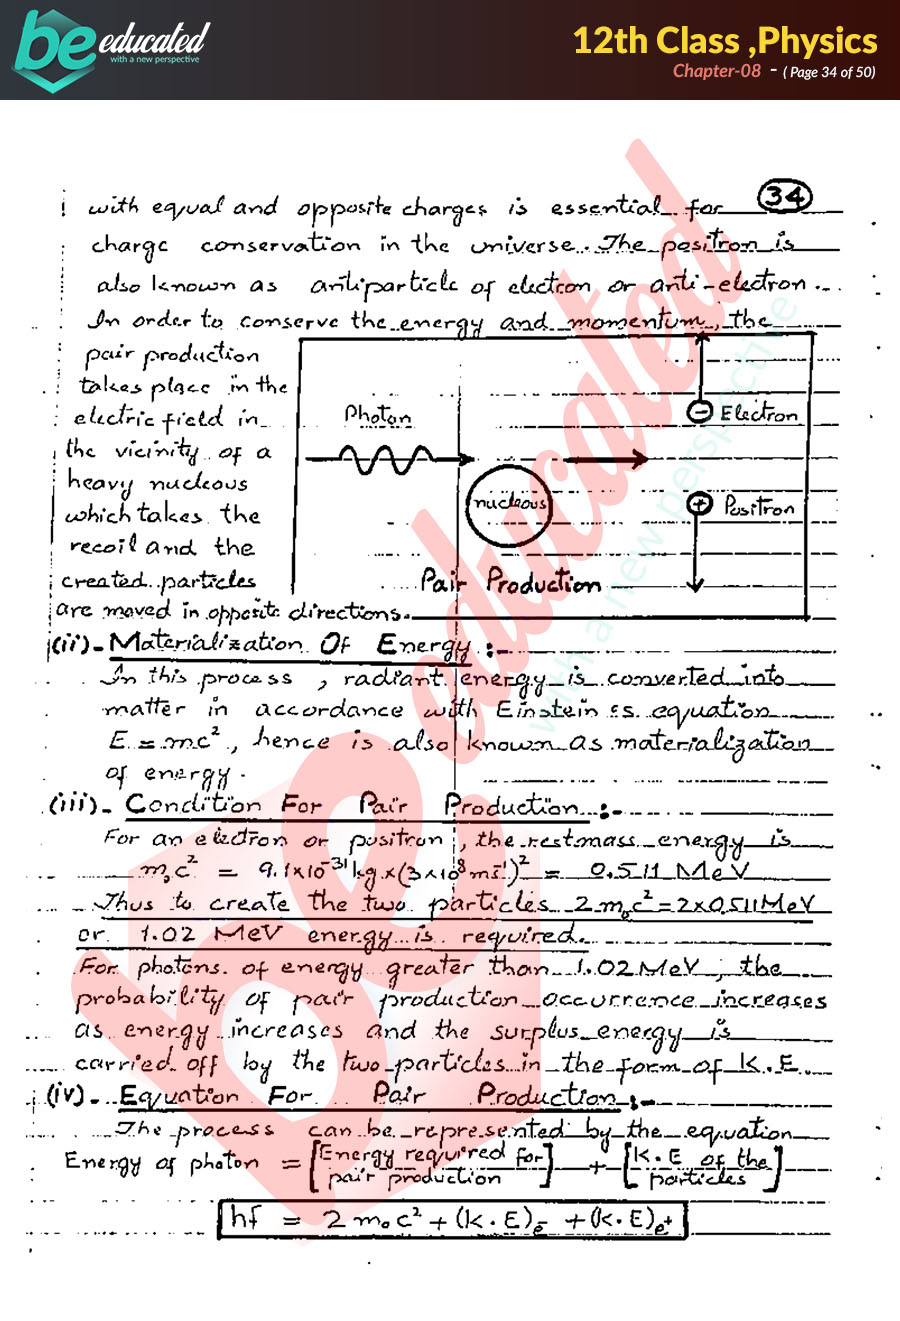 be educated
with a new perspective
12th Class ,Physics
Chapter-08 - ( Page 34 of 50)
34
with equal and opposite charges is essential for
charge conservation in the universe. The positron is
also known as antiparticle of electron or anti-electron.
In order to conserve the energy and momentum, the
pair production
takes place in the
electric field in
the vicinity of a
heavy nucleous
which takes the
recoil and the
created particles
are moved in opposite directions.
Photon
nucleous
Electron
Positron
Pair Production
(ii)- Materialization Of Energy :-
In this process, radiant energy is converted into
matter in accordance with Einstein's equation
E = mc², hence is also known as materialization
of energy.
(iii)- Condition For Pair Production :-
For an electron or positron, the restmass energy is
m₀c² = 9.1×10⁻³¹kg×(3×10⁸ms⁻¹)² = 0.511 MeV
Thus to create the two particles 2m₀c²=2×0.511MeV
or 1.02 MeV energy is required.
For photons of energy greater than 1.02 MeV, the
probability of pair production occurrence increases
as energy increases and the surplus energy is
carried off by the two particles in the form of K.E.
(iv)- Equation For Pair Production :-
The process can be represented by the equation
Energy of photon = [Energy required for pair production] + [K.E of the particles]
hf = 2m₀c² + (K.E)e⁻ + (K.E)e⁺
be educated
with a new perspective